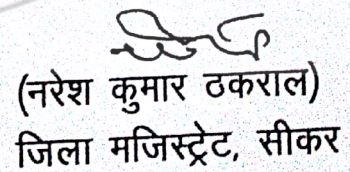 (नरेश कुमार ठकराल)
जिला मजिस्ट्रेट, सीकर